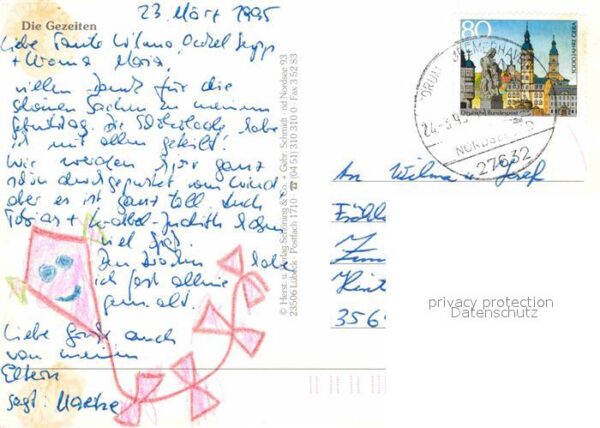 23. März 1995
Die Gezeiten
Liebe Tante Wilma, Onkel Sepp
+ Maria,
vielen Dank für die
schönen Sachen zu meinem
Geburtstag. Die habe
ich mit allen geteilt!
Wir werden hier ganz
schön durchgepustet vom Wind
aber es ist ganz toll. Auch
Tobias + Judith haben
viel Spaß.
Den Drachen habe
ich fast alleine
gemalt.
Liebe Grüße auch
von meinen
Eltern
sagt:
© Herst. u. Verlag Schöning & Co. + Gebr. Schmidt
23506 Lübeck · Postfach 1710 · ☎ (04 51) 310 310 0 · Fax 3 52 83
80
Deutsche Bundespost
1000 JAHRE GERA
BREMERHAVEN
24.-3.95
NORDSEE
27632
An Wilma u. Josef
3569
privacy protection
Datenschutz